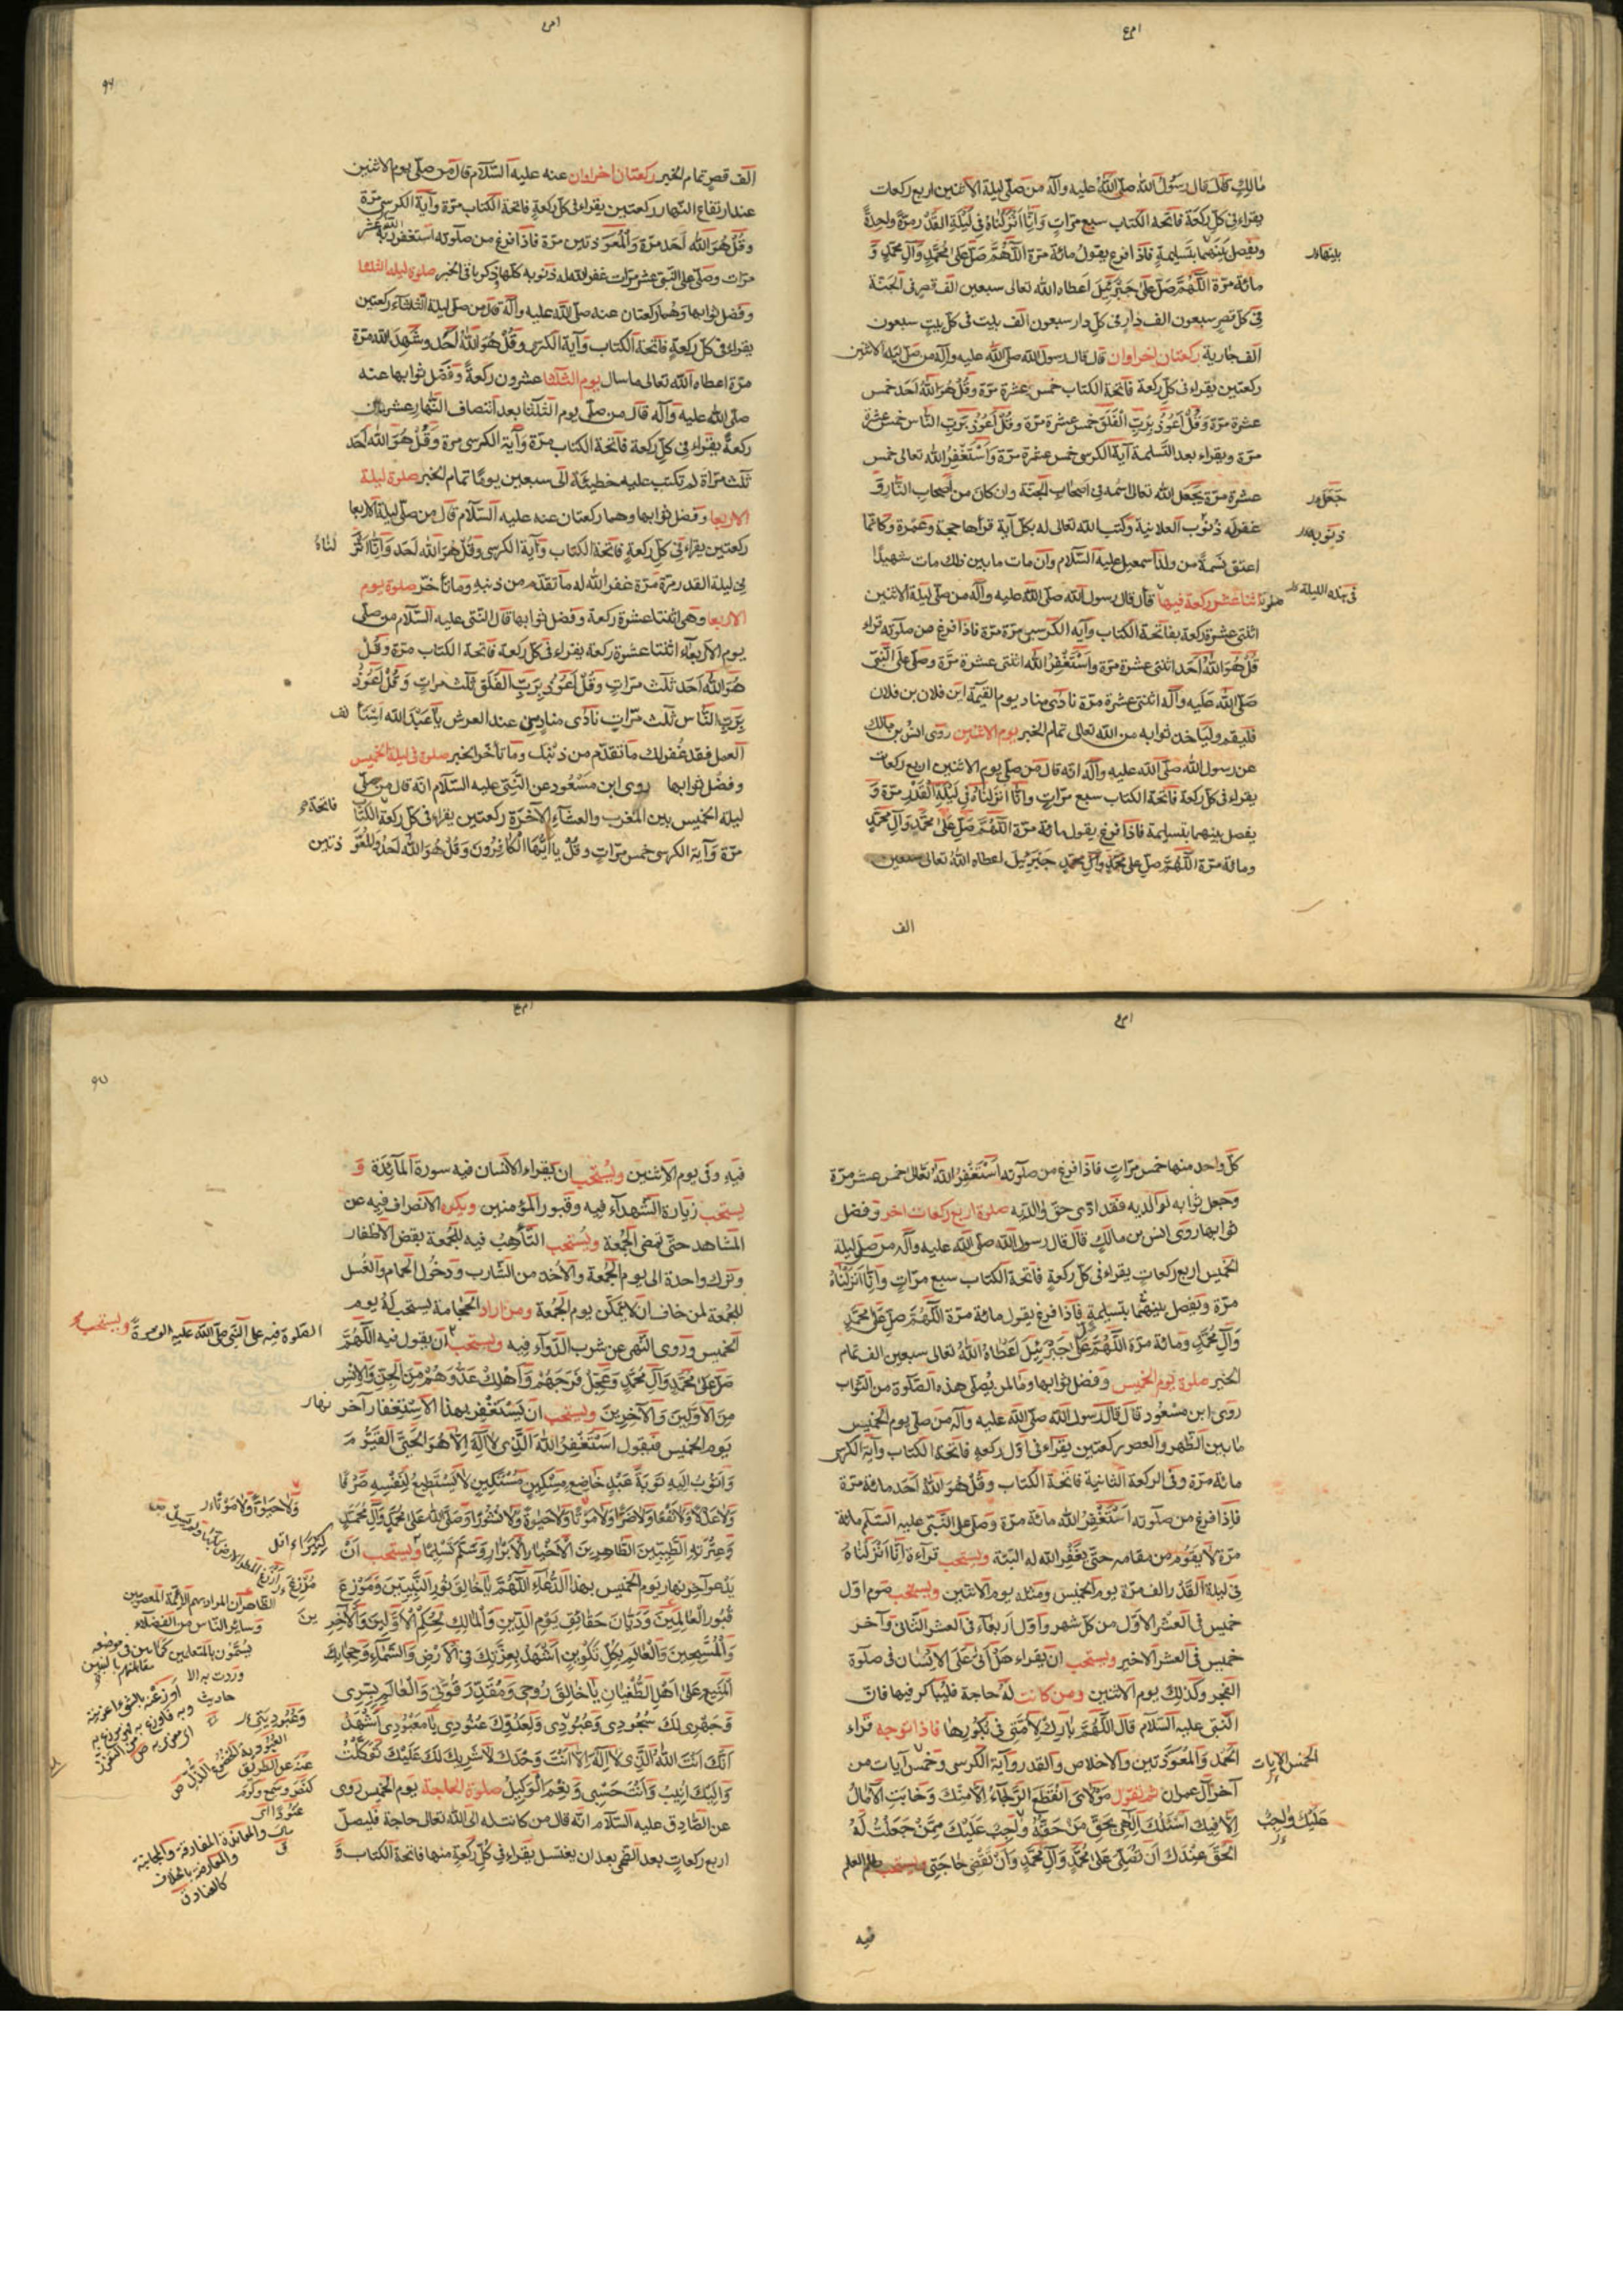 مالك قال قال رسول الله صلى الله عليه وآله من صلى ليلة الاثنين اربع ركعات
يقراء في كل ركعة فاتحة الكتاب سبع مرات وانا انزلناه في ليلة القدر مرة واحدة
ويفصل بينهما بتسليمة فاذا فرغ يقول مائة مرة اللهم صل على محمد وآل محمد و
بينها
مائة مرة اللهم صل على جبرئيل اعطاه الله تعالى سبعين الف قصر في الجنة
في كل قصر سبعون الف دار في كل دار سبعون الف بيت في كل بيت سبعون
الف جارية ركعتان اخراوان قال قال رسول الله صلى الله عليه وآله من صلى ليلة الاثنين
ركعتين يقراء في كل ركعة فاتحة الكتاب خمس عشرة مرة وقل هو الله احد خمس
عشرة مرة وقل اعوذ برب الفلق خمس عشرة مرة وقل اعوذ برب الناس خمس عشرة
مرة ويقراء بعد التسليمة آية الكرسي خمس عشرة مرة واستغفر الله تعالى خمس
عشرة مرة يجعل الله تعالى اسمه في اصحاب الجنة وان كان من اصحاب النار و
جعل
غفر له ذنوب العلانية وكتب الله تعالى له بكل آية قرأها حجة وعمرة وكانما
ذنوبه
اعتق نسمة من ولد اسمعيل عليه السلام وان مات ما بين ذلك مات شهيدا
اثنتا عشر ركعة فيها قال قال رسول الله صلى الله عليه وآله من صلى ليلة الاثنين
في هذه الليلة
اثنتى عشرة ركعة بفاتحة الكتاب وآية الكرسي مرة مرة فاذا فرغ من صلوته قراء
قل هو الله احد اثنتى عشرة مرة واستغفر الله اثنتى عشرة مرة وصلى على النبي
صلى الله عليه وآله اثنتى عشرة مرة نادى مناد يوم القيمة اين فلان بن فلان
فليقم وليأخذ ثوابه من الله تعالى تمام الخبر يوم الاثنين روى انس بن مالك
عن رسول الله صلى الله عليه وآله انه قال من صلى يوم الاثنين اربع ركعات
يقراء في كل ركعة فاتحة الكتاب سبع مرات وانا انزلناه في ليلة القدر مرة و
يفصل بينهما بتسليمة فاذا فرغ يقول مائة مرة اللهم صل على محمد وآل محمد
ومائة مرة اللهم صل على محمد وآل محمد جبرئيل اعطاه الله تعالى سبعين
الف
الف قصر تمام الخبر ركعتان اخراوان عنه عليه السلام قال من صلى يوم الاثنين
عند ارتفاع النهار ركعتين يقراء في كل ركعة فاتحة الكتاب مرة وآية الكرسي مرة
وقل هو الله احد مرة والمعوذتين مرة فاذا فرغ من صلوته استغفر ربه عشر
مرات وصلى على النبي عشر مرات غفر الله له ذنوبه كلها ذكر باقى الخبر صلوة ليلة الثلثا
وفضل ثوابها وهما ركعتان عنه صلى الله عليه وآله قال من صلى ليلة الثلثاء ركعتين
يقراء في كل ركعة فاتحة الكتاب وآية الكرسي وقل هو الله احد وشهد الله مرة
مرة اعطاه الله تعالى ما سال يوم الثلثا عشرون ركعة وفضل ثوابها عنه
صلى الله عليه وآله قال من صلى يوم الثلثا بعد انتصاف النهار عشرين
ركعة يقراء في كل ركعة فاتحة الكتاب مرة وآية الكرسي مرة وقل هو الله احد
ثلث مراة لم تكتب عليه خطيئة الى سبعين يوما تمام الخبر صلوة ليلة
الاربعا وفضل ثوابها وهما ركعتان عنه عليه السلام قال من صلى ليلة الاربعا
ركعتين يقراء في كل ركعة فاتحة الكتاب وآية الكرسي وقل هو الله احد وانا انز لناه
في ليلة القدر مرة مرة غفر الله له ما تقدم من ذنبه وما تأخر صلوة يوم
الاربعا وهي اثنتا عشرة ركعة وفضل ثوابها قال النبي عليه السلام من صلى
يوم الاربعاء اثنتا عشرة ركعة يقراء في كل ركعة فاتحة الكتاب مرة وقل
هو الله احد ثلث مرات وقل اعوذ برب الفلق ثلث مرات وقل اعوذ
برب الناس ثلث مرات نادى مناد من عند العرش يا عبد الله استأ نف
العمل فقد غفر لك ما تقدم من ذنبك وما تأخر الخبر صلوة في ليلة الخميس
وفضل ثوابها روى ابن مسعود عن النبي عليه السلام انه قال من صلى
ليلة الخميس بين المغرب والعشاء الآخرة ركعتين يقراء في كل ركعة الكتاب
فاتحة
مرة وآية الكرسي خمس مرات وقل يا ايها الكافرون وقل هو الله احد والمعو ذتين
كل واحد منها خمس مرات فاذا فرغ من صلوته استغفر الله تعالى خمس عشر مرة
وجعل ثوابه لوالديه فقد ادى حق والديه صلوة اربع ركعات اخر وفضل
ثوابها روى انس بن مالك قال قال رسول الله صلى الله عليه وآله من صلى ليلة
الخميس اربع ركعات يقراء في كل ركعة فاتحة الكتاب سبع مرات وانا انزلناه
مرة ويفصل بينهما بتسليمة فاذا فرغ يقول مائة مرة اللهم صل على محمد
وآل محمد ومائة مرة اللهم صل على جبرئيل اعطاه الله تعالى سبعين الف تمام
الخبر صلوة يوم الخميس وفضل ثوابها وما لمن يصلى هذه الصلوة من الثواب
روى ابن مسعود قال قال رسول الله صلى الله عليه وآله من صلى يوم الخميس
ما بين الظهر والعصر ركعتين يقراء في اول ركعة فاتحة الكتاب وآية الكرسي
مائة مرة وفي الركعة الثانية فاتحة الكتاب وقل هو الله احد مائة مرة
فاذا فرغ من صلوته استغفر الله مائة مرة وصلى على النبي عليه السلم مائة
مرة لا يقوم من مقامه حتى يغفر الله له البتة ويستحب قراءة انا انزلناه
في ليلة القدر الف مرة يوم الخميس ومثله يوم الاثنين ويستحب صوم اول
خميس في العشر الاول من كل شهر واول اربعاء في العشر الثانى وآخر
خميس في العشر الاخير ويستحب ان يقراء هل اتى على الانسان في صلوة
الفجر وكذلك يوم الاثنين ومن كانت له حاجة فليباكر فيها فان
النبي عليه السلام قال اللهم بارك لامتى في بكورها فاذا توجه قراء
الحمد والمعوذتين والاخلاص والقدر وآية الكرسي وخمس آيات من
الخمس الآيات
آخر آل عمران ثم تقول مولاى انقطع الرجاء الا منك وخابت الآمال
الا فيك اسئلك الهى بحق من حقه واجب عليك ممن جعلت له
عليك واجب
الحق عندك ان تصلى على محمد وآل محمد وان تقضى حاجتى
فيه
فيه وفى يوم الاثنين ويستحب ان يقراء الانسان فيه سورة المائدة و
يستحب زيارة الشهداء فيه وقبور المؤمنين ويكره الانصراف فيه عن
المشاهد حتى تمضى الجمعة ويستحب التأهب فيه للجمعة بقص الاظفار
وترك واحدة الى يوم الجمعة والاخذ من الشارب ودخول الحمام والغسل
للجمعة لمن خاف ان لا يتمكن يوم الجمعة ومن اراد الحجامة يستحب له يوم
الخميس وروى النهى عن شرب الدواء فيه ويستحب ان يقول فيه اللهم
الصلوة فيه على النبي صلى الله عليه ويستحب
صل على محمد وآل محمد وعجل فرجهم واهلك عدوهم من الجن والانس
من الاولين والآخرين ويستحب ان يستغفر بهذا الاستغفار آخر نهار
يوم الخميس فيقول استغفر الله الذى لا اله الا هو الحي القيوم
واتوب اليه توبة عبد خاضع مسكين مستكين لا يستطيع لنفسه صرفا
ولا عدلا ولا نفعا ولا ضرا ولا موتا ولا حيوة ولا نشورا وصلى الله على محمد وآل محمد
ولا حيوة ولا موتا
وعترته الطيبين الطاهرين الاخيار الابرار وسلم تسليما ويستحب ان
كثيرا
يدعو آخر نهار يوم الخميس بهذا الدعاء اللهم يا خالق نور النبيين وموزع
قبور العالمين وديان حقائق يوم الدين والمالك لحكم الاولين والآخر ين
والمسبحين والعالم بكل تكوين اشهد بعزتك في الارض والسماء وحجابك
المنيع على اهل الطغيان يا خالق روحى ومقدر قوتى والعالم بسرى
وجهرى لك سجودى وعبودى ولعدوك عنودى يا معبودى اشهد
انك انت الله الذى لا اله الا انت وحدك لا شريك لك عليك توكلت
واليك انيب وانت حسبى ونعم الوكيل صلوة الحاجة يوم الخميس روى
عن الصادق عليه السلام انه قال من كانت له الى الله تعالى حاجة فليصل
اربع ركعات بعد الضحى بعد ان يغتسل يقراء في كل ركعة منها فاتحة الكتاب و